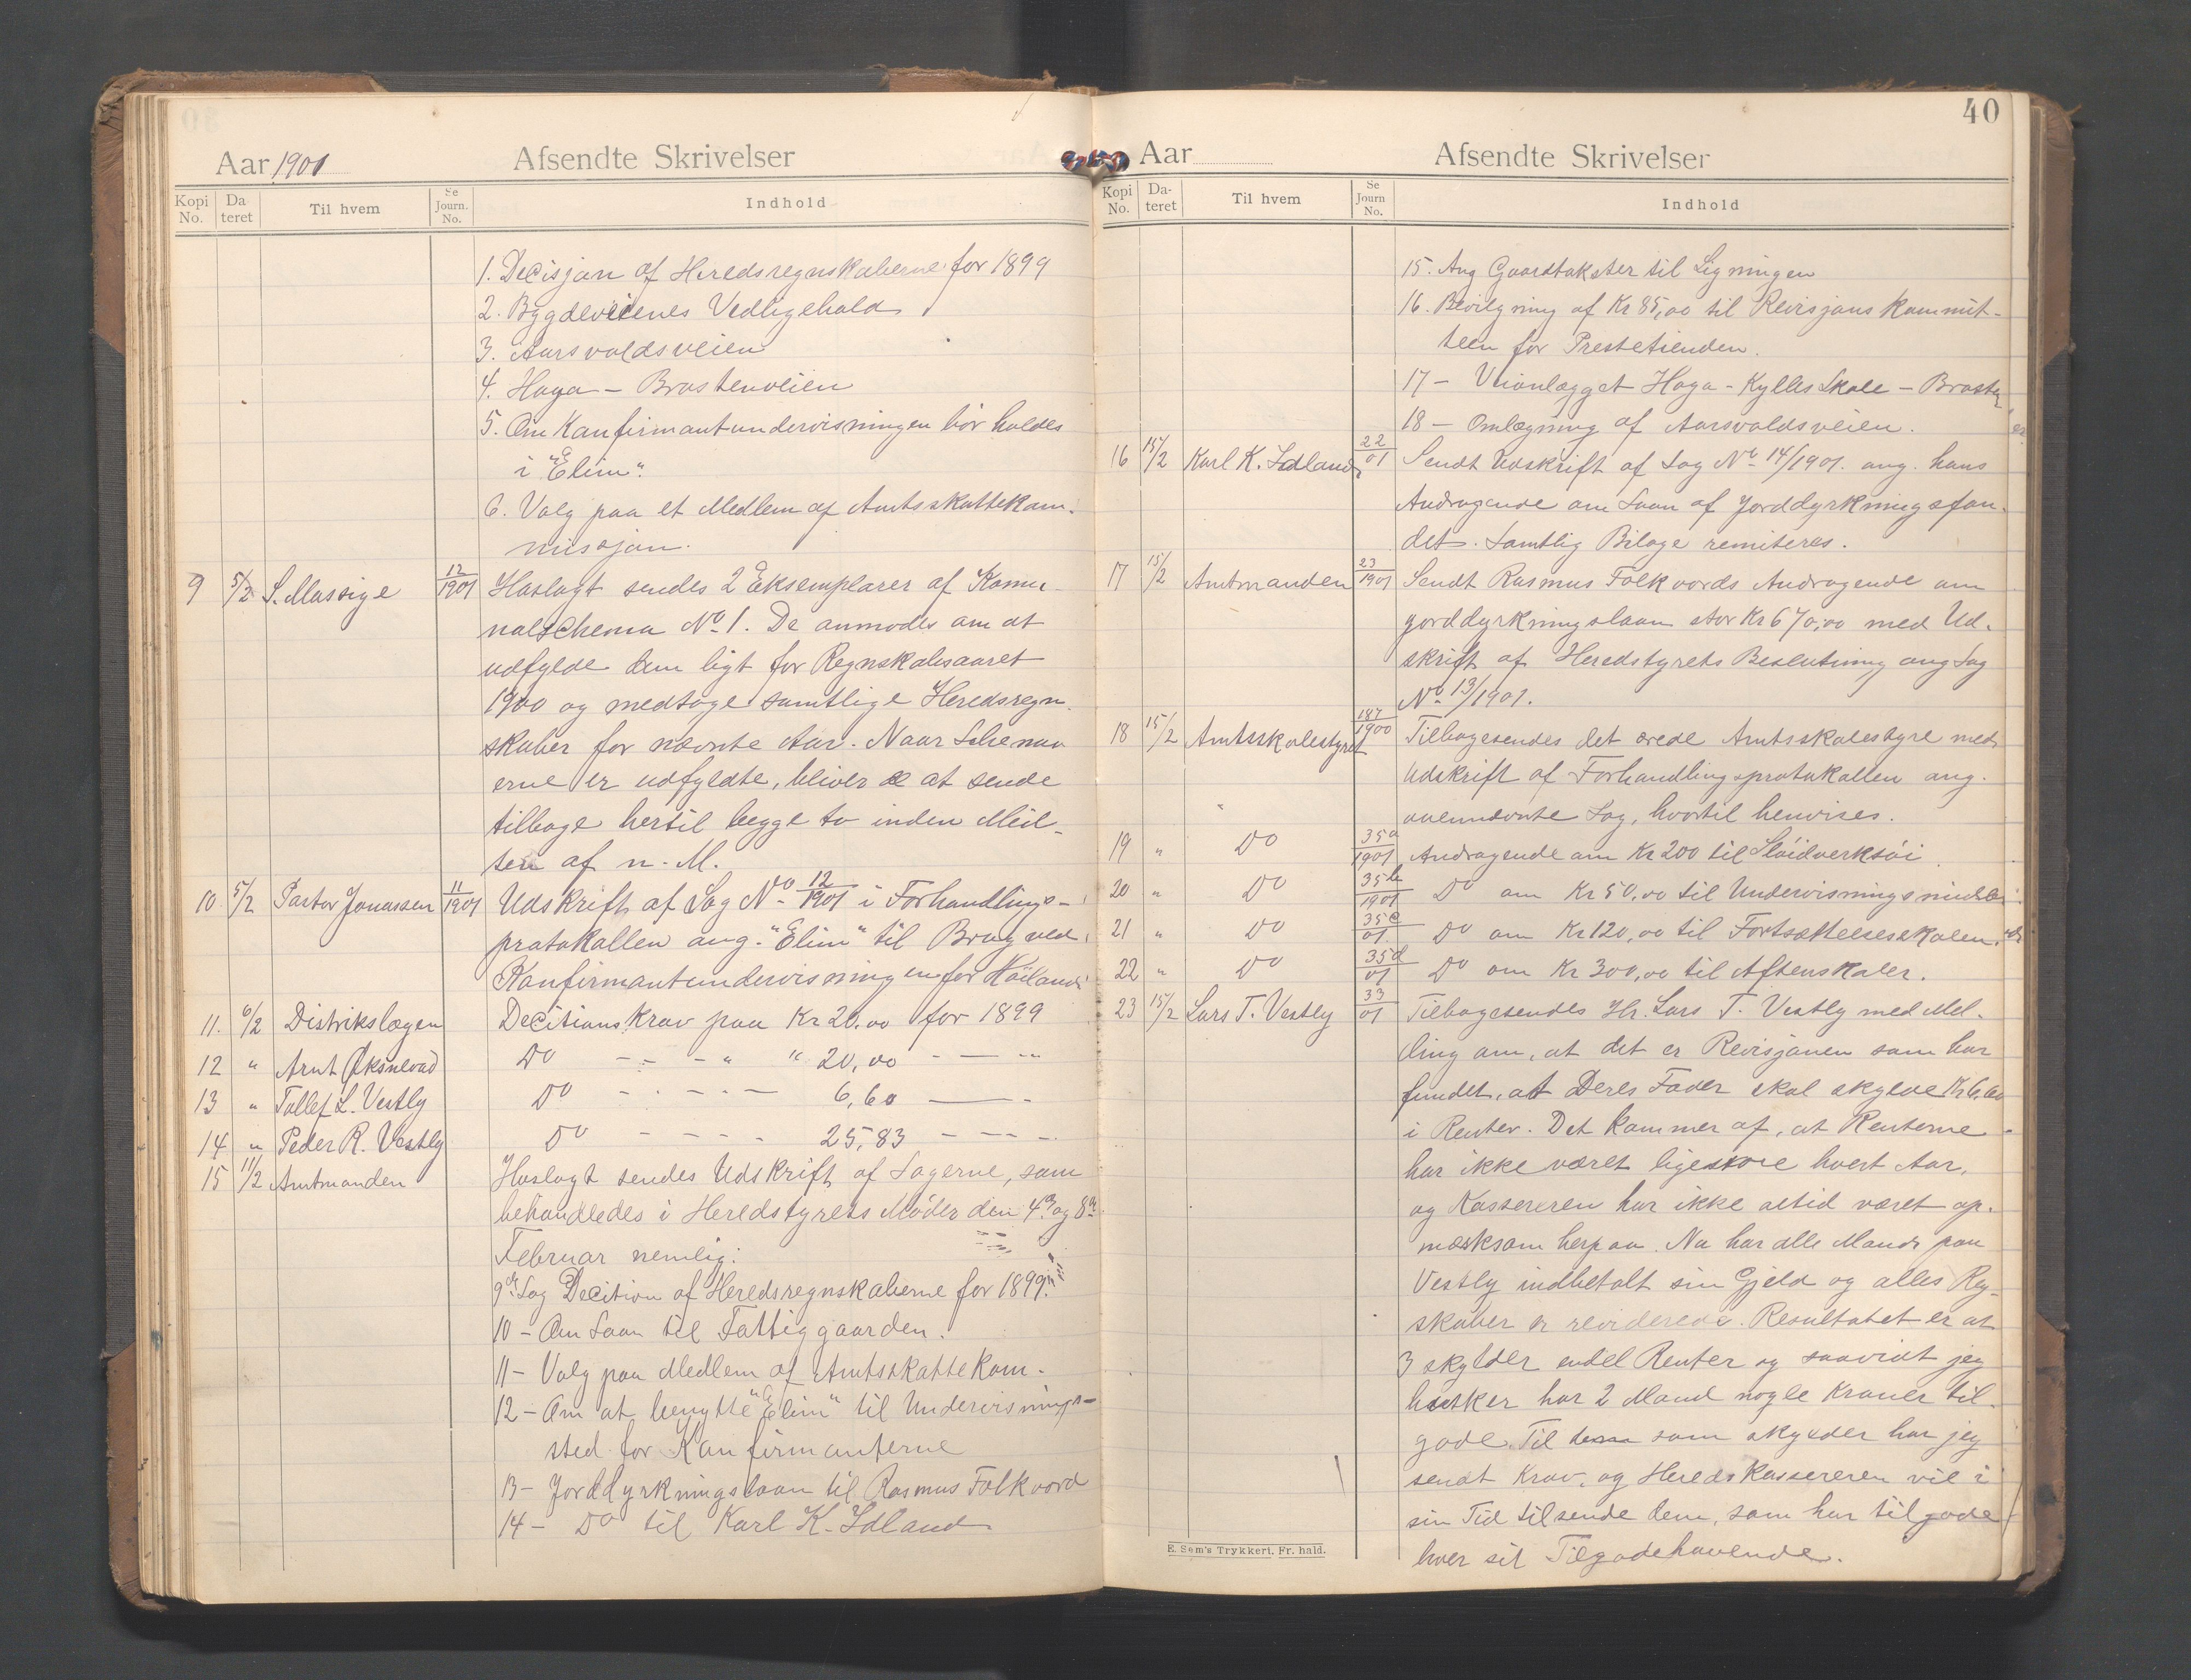 Aar 1901 Afsendte Skrivelser
Kopi No. Da teret Til hvem Se Journ. No. Indhold
1. Decisjon af Heredsregnskaberne for 1899
2. Bygdeveienes Vedligehold
3. Aarsvoldsveien
4. Haga - Brastenveien
5. Om Konfirmantundervisningen bör holdes
i "Elim".
6. Valg paa et Medlem af Amtsskattekom-
missjon.
9 5/2 S. Massige 12/1901 Hoslagt sendes 2 Eksemplarer af Komu-
nalschema No 1. De anmodes om at
udfylde dem ligt for Regnskabsaaret
1900 og medtage samtlige Heredsregn-
skaber for nævnte Aar. Naar Schema
erne er udfyldte, bliver de at sende
tilbage hertil begge to inden Mid-
ten af n. M.
10 5/2 Pastor Jonassen 11/1901 Udskrift af Sag No 12/1901 i Forhandlings-
protokollen ang. "Elim" til Brug ved
Konfirmantundervisningen for Höiland
11. 6/2 Distrikslægen Decitions Krav paa Kr 20,00 for 1899
12 " Arnt Øksnevad Do - - - " " 20,00 - - "
13 " Tollef L. Vestly Do - - - - 6,60 - -
14 " Peder R. Vestly Do - - - - 25,83 - - -
15 11/2 Amtmanden Hoslagt sendes Udskrift af Sagerne, som
behandledes i Heredstyrets Møder den 4de og 8de
Februar nemlig:
9de Sag Decition af Heredsregnskaberne for 1899.
10 - Om Laan til Fattiggaarden.
11 - Valg paa Medlem af Amtsskattekom-
12 - Om at benytte "Elim" til Undervisnings-
sted for Konfirmanterne
13 - Jorddyrkningslaan til Rasmus Folkvord
14 - Do til Karl K. Idland
40
Aar Afsendte Skrivelser
Kopi No. Da- teret Til hvem Se Journ No. Indhold
15. Ang Gaardtakster til Ligningen
16. Bevilgning af Kr 85,00 til Revisjons kommit-
teen for Prestetienden.
17 - Veianlægget Haga - Kylles Skole - Brasten
18 - Omlægning af Aarsvoldsveien.
16 15/2 Karl K. Idland 22/01 Sendt Udskrift af Sag No 14/1901. ang. hans
Andragende om Laan af Jorddyrkningsfon-
det. Samtlig Bilage remiteres.
17 15/2 Amtmanden 23/1901 Sendt Rasmus Folkvords Andragende om
jorddyrkningslaan stor Kr 670,00 med Ud-
skrift af Heredstyrets Beslutning ang Sag
No 13/1901.
18 15/2 Amtsskolestyret 187/1900 Tilbagesendes det ærede Amtsskolestyre med
Udskrift af Forhandlingsprotokollen ang.
ovennævnte Sag, hvortil henvises.
19 " Do 35a/1901 Andragende om Kr 200 til Slöidverktöi
20 " Do 35b/1901 Do om Kr 50,00 til Undervisningsmidler
21 " Do 35c/01 Do om Kr 120,00 til Fortsættelsesskolen
22 " Do 35d/01 Do om Kr 300,00 til Aftenskoler.
23 15/2 Lars T. Vestly 33/01 Tilbagesendes Hr. Lars T. Vestly med Mel-
ding om, at det er Revisjonen som har
fundet, at Deres Fader skal skylde Kr 6,60
i Renter. Det kommer af, at Renterne
har ikke været ligestore hvert Aar,
og Kassereren har ikke altid været op-
mærksom herpaa. Nu har alle Mand paa
Vestly indbetalt sin Gjeld og alles Reg-
skaber er reviderede. Resultatet er at
3 skylder endel Renter og saavidt jeg
husker har 2 Mand nogle Kroner til-
gode. Til dem som skylder har jeg
sendt Krav, og Heredskassereren vil i
sin Tid tilsende dem, som har tilgode
hver sit Tilgodehavende.
E. Sem's Trykkeri, Fr. hald.